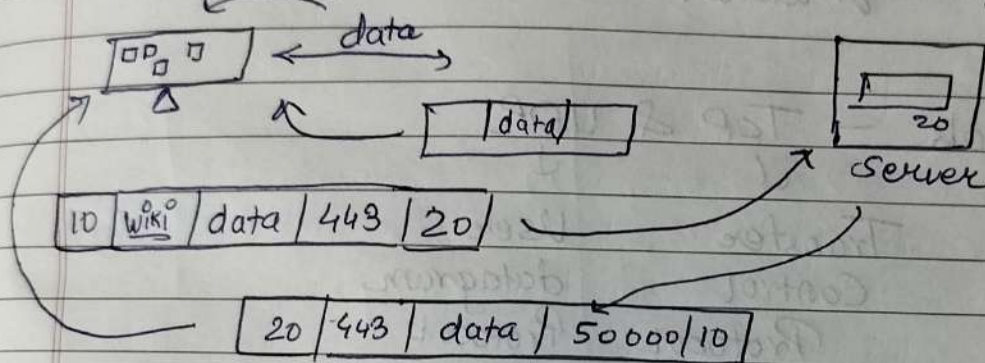 data
data
20
Server
10 | wiki | data | 443 | 20
20 | 443 | data | 50000 | 10